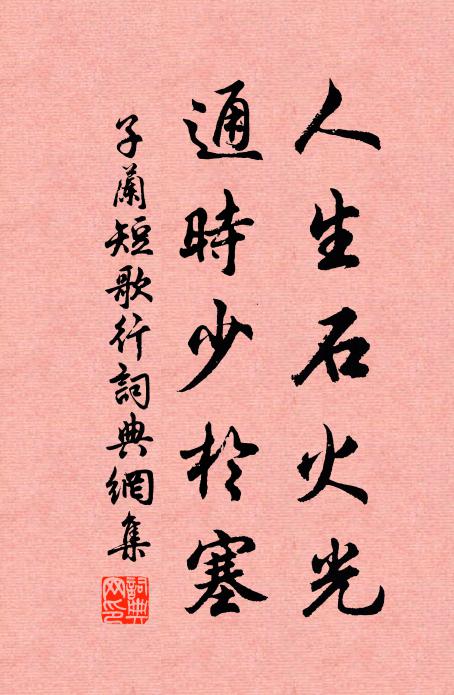 人生石火光
通時少於塞
子蘭短歌行詞典網集
詞典網印